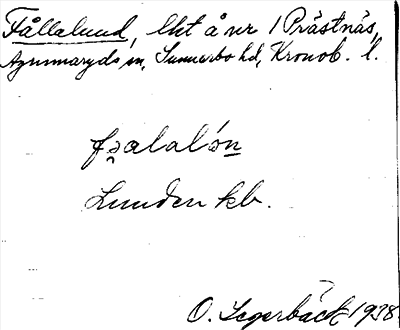 Fållalund, lht å nr 1 Prästnäs,
Agunnaryds sn, Sunnerbo hd, Kronob. l.
Lunden kb.
O. Segerbäck 1938